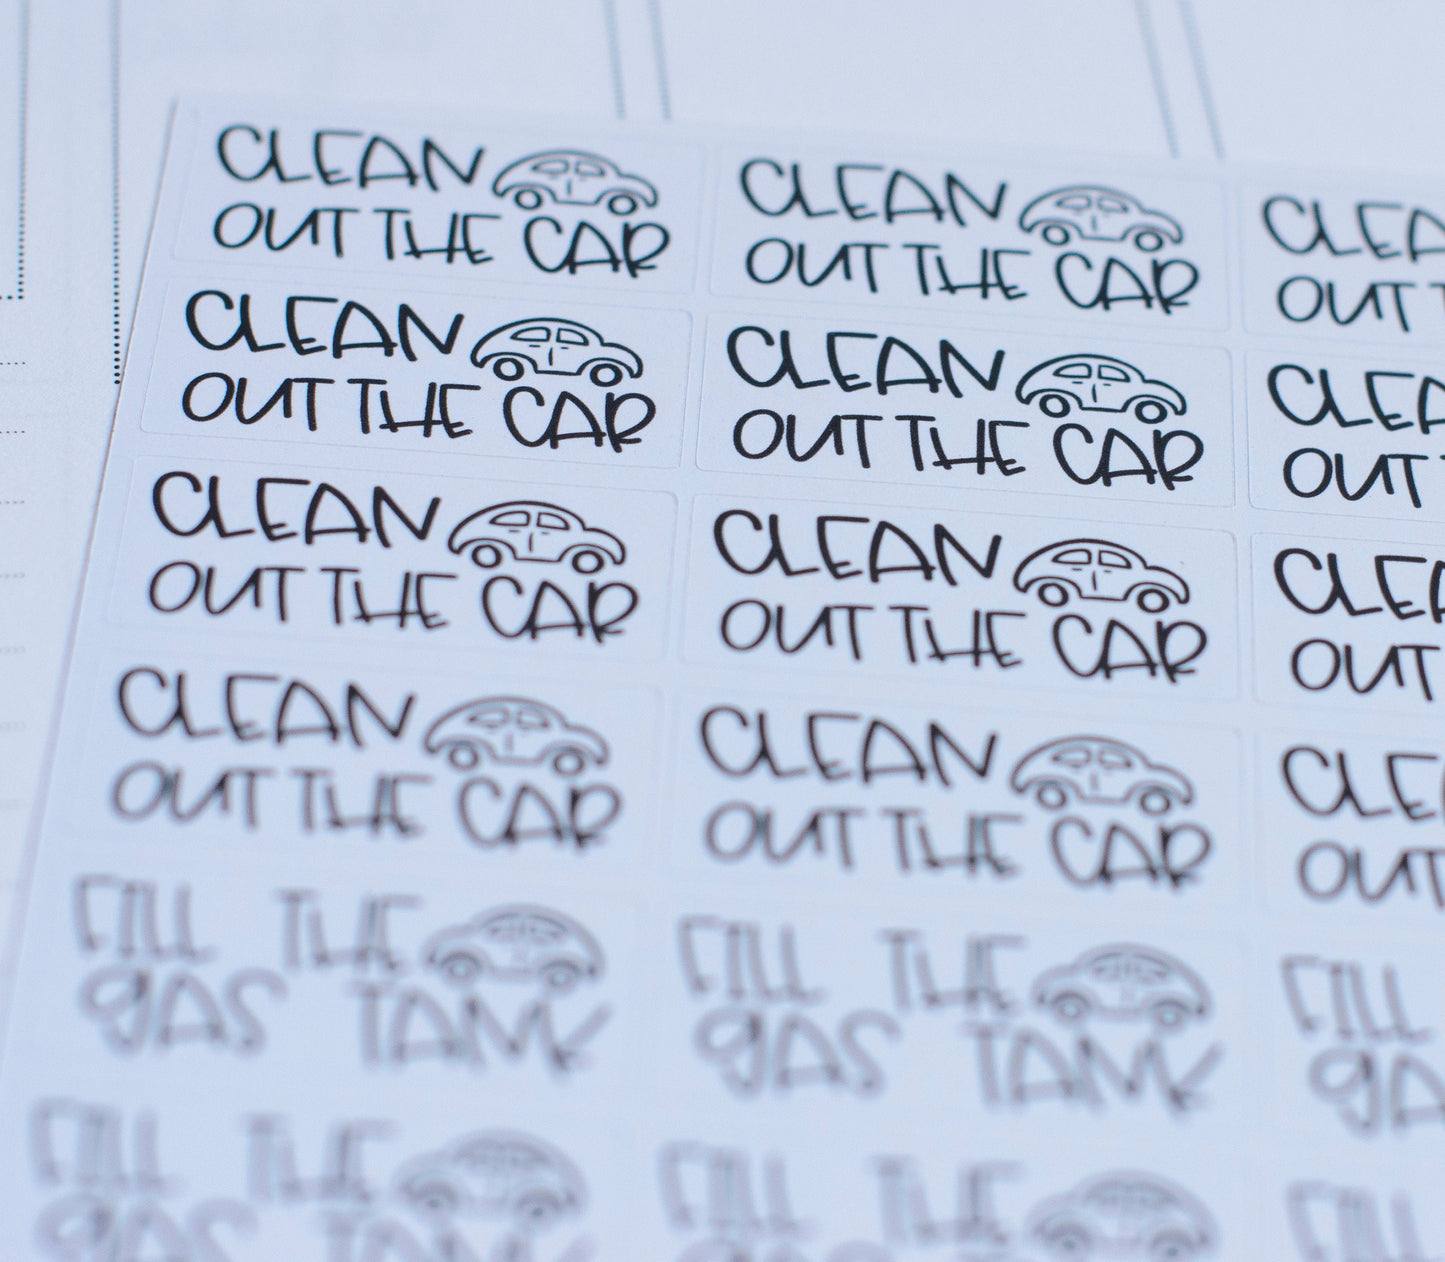 CLEAN
OUT THE CAR
CLEAN
OUT THE CAR
CLEA
OUT T
CLEAN
OUT THE CAR
CLEAN
OUT THE CAR
CLEA
OUT
CLEAN
OUT THE CAR
CLEAN
OUT THE CAR
CLEA
OUT
CLEAN
OUT THE CAR
CLEAN
OUT THE CAR
CLE
OUT
FILL THE
GAS TANK
FILL THE
GAS TANK
FILL
GA
FILL THE
GAS TANK
FILL THE
FILL